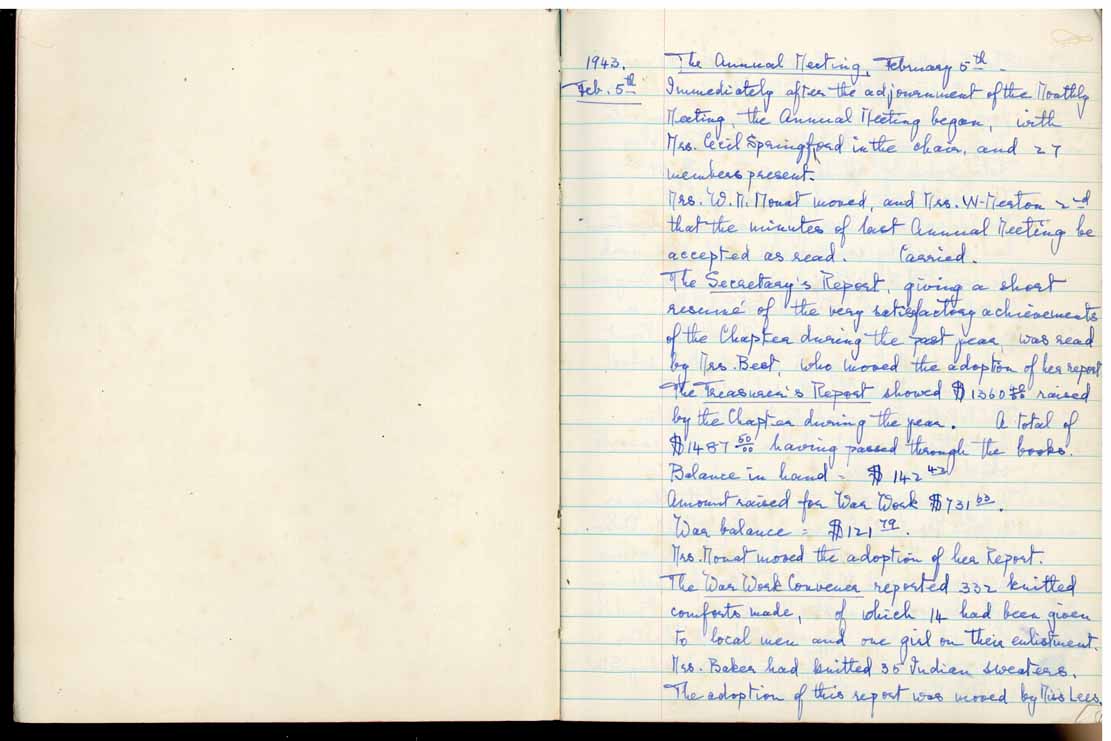 1943. The Annual Meeting, February 5th.
Feb. 5th Immediately after the adjournment of the Monthly
Meeting, the Annual Meeting began, with
Mrs. Cecil Springford in the chair, and 27
members present.
Mrs. W.M. Mouat moved, and Mrs. W-Merton 2nd
that the minutes of last Annual Meeting be
accepted as read. Carried.
The Secretary's Report, giving a short
resumé of the very satisfactory achievements
of the Chapter during the past year, was read
by Mrs. Best, who moved the adoption of her report
The Treasurer's Report showed $1360 raised
by the Chapter during the year. A total of
$1487 50/00 having passed through the books.
Balance in hand = $142 43
Amount raised for War Work $731 63.
War balance = $121 79.
Mrs. Mouat moved the adoption of her Report.
The War Work Convener reported 332 knitted
comforts made, of which 14 had been given
to local men and one girl on their enlistment.
Mrs. Baker had knitted 35 Indian sweaters.
The adoption of this report was moved by Miss Lees.